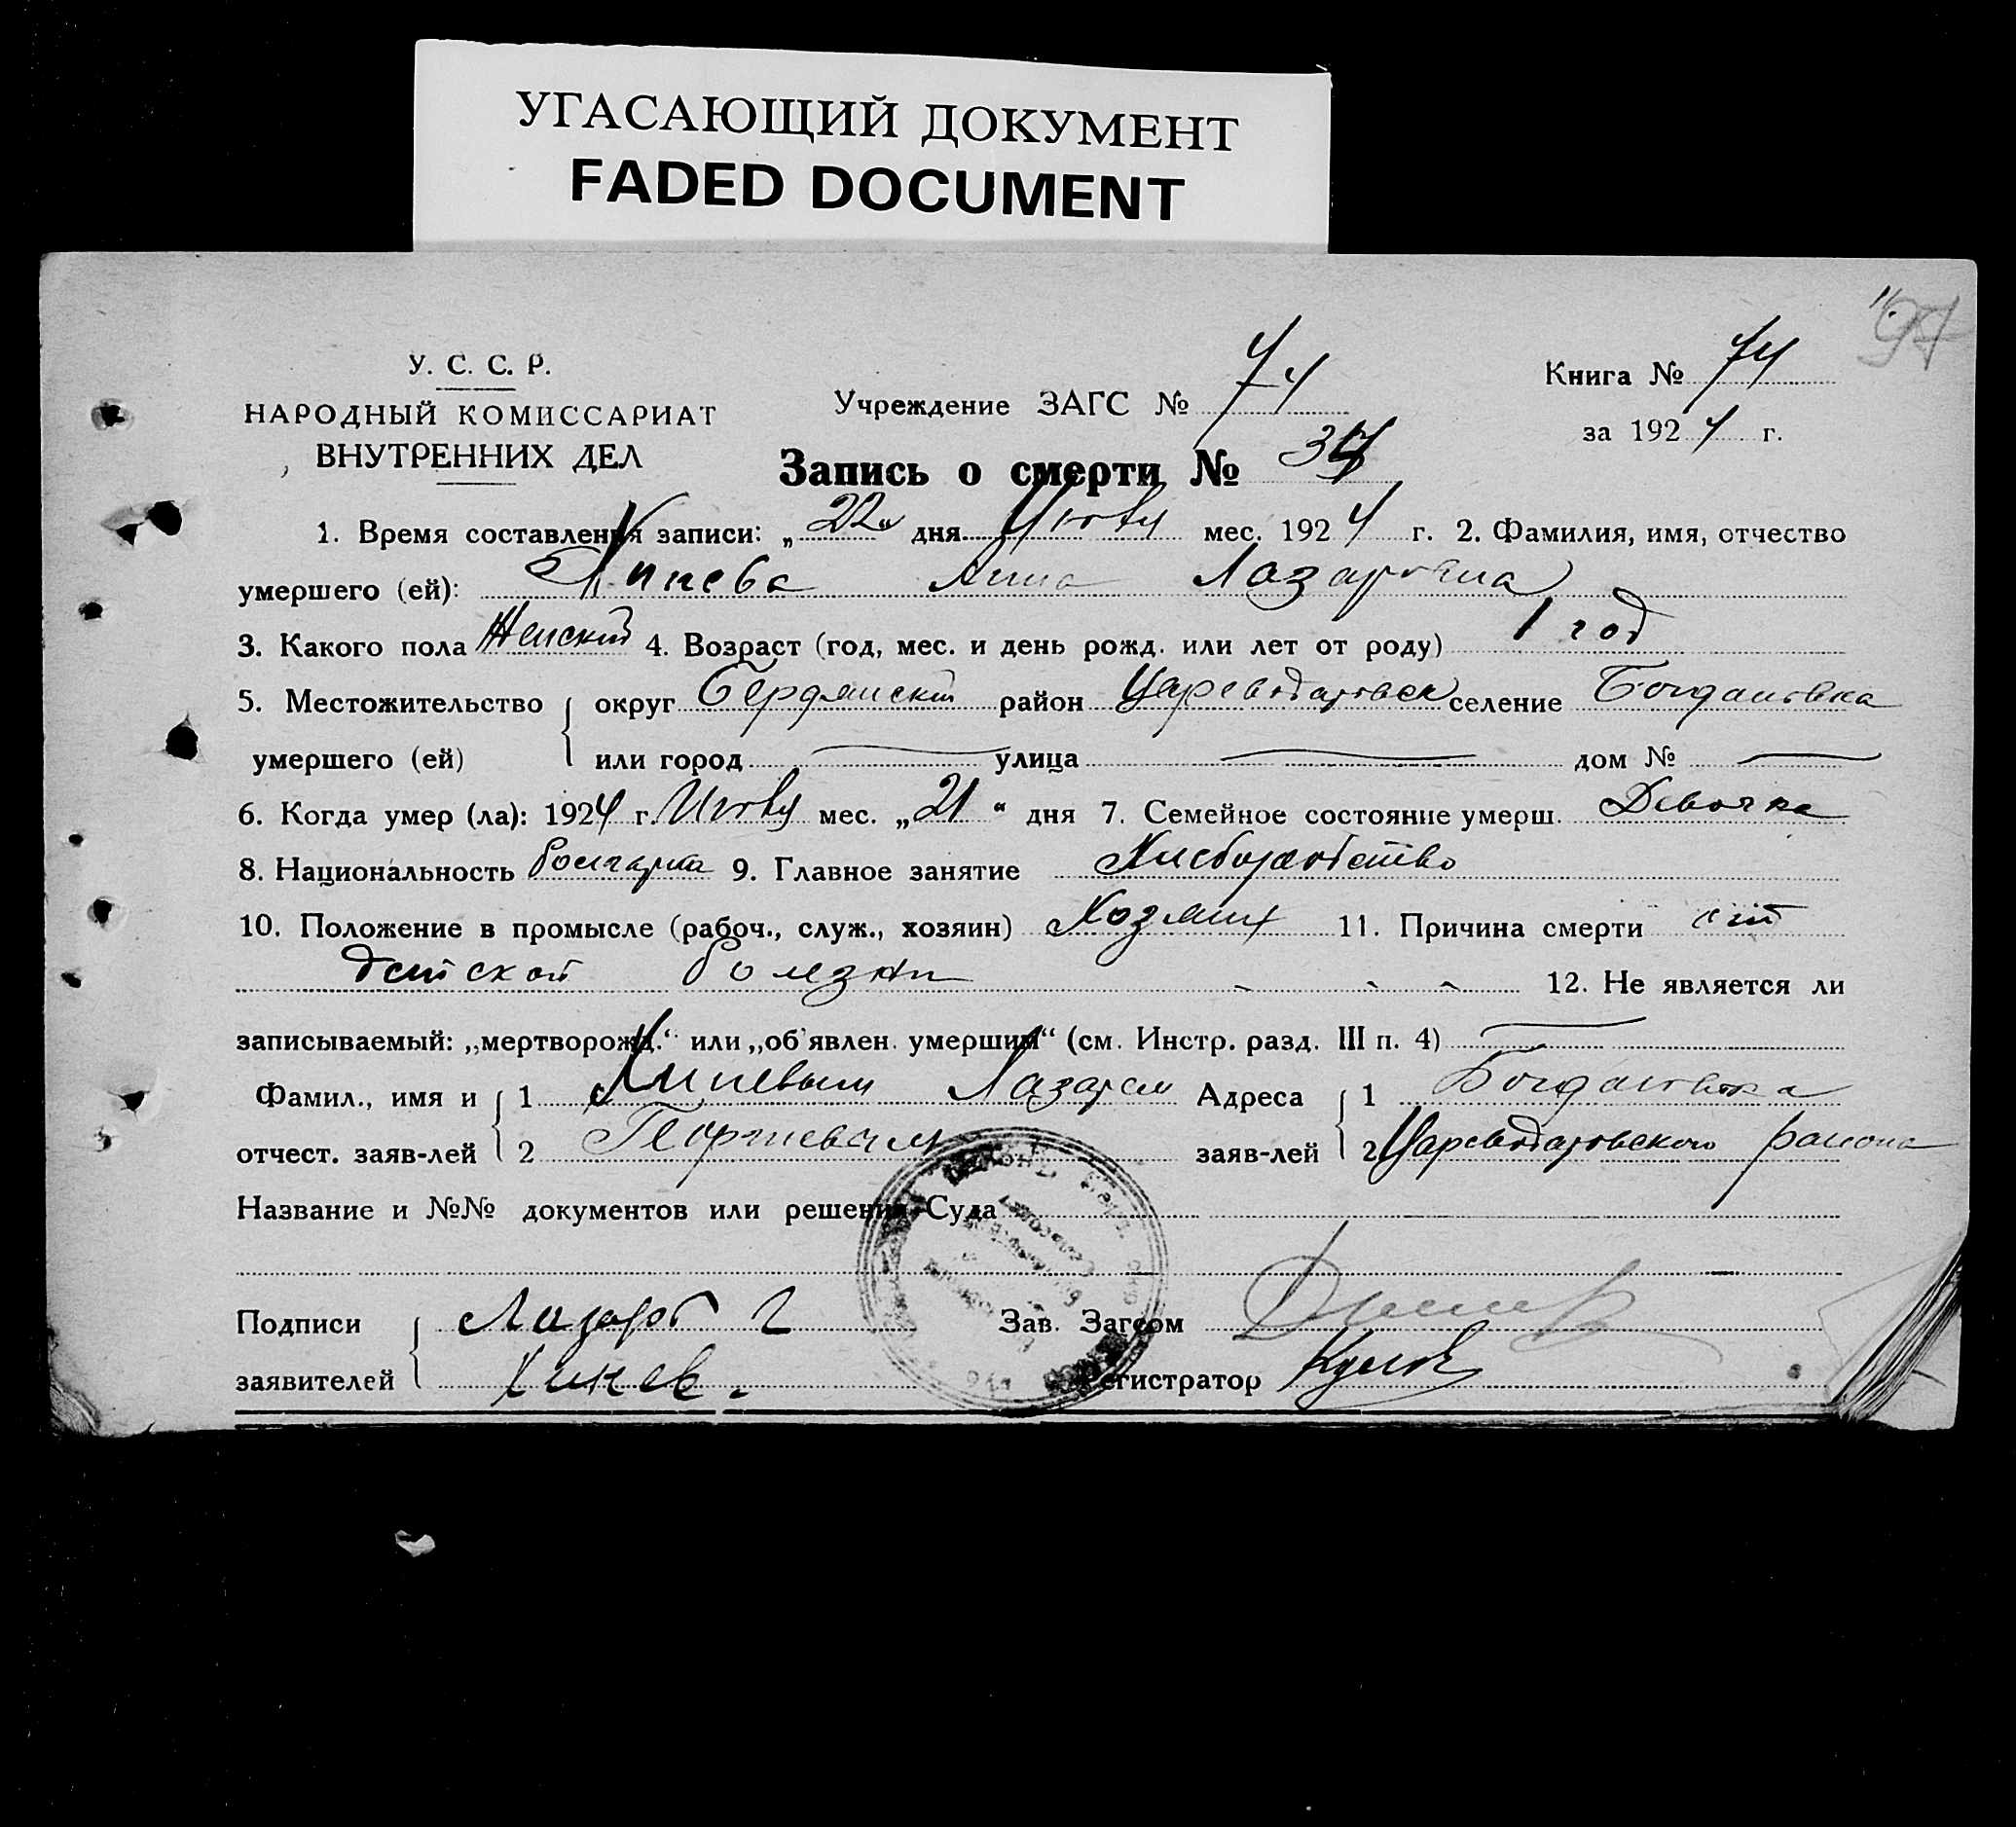 УГАСАЮЩИЙ ДОКУМЕНТ
FADED DOCUMENT
У. С. С. Р.
НАРОДНЫЙ КОМИССАРИАТ
ВНУТРЕННИХ ДЕЛ
Учреждение ЗАГС № 74
Книга № 74
за 1924 г.
Запись о смерти №
1. Время составления записи: „22“ дня Июня мес. 1924 г. 2. Фамилия, имя, отчество
умершего (ей): Хинева Анна Лазаровна
3. Какого пола Женский 4. Возраст (год, мес. и день рожд. или лет от роду) 1 год
5. Местожительство округ Бердянский район Цареводаровск селение Богдановка
умершего (ей) или город улица дом №
6. Когда умер (ла): 1924 г. мес. „21“ дня 7. Семейное состояние умерш. Девочка
8. Национальность болгарка 9. Главное занятие Хлебопашество
10. Положение в промысле (рабоч., служ., хозяин) Хозяин 11. Причина смерти от
детской болезни 12. Не является ли
записываемый: „мертворожд.“ или „об'явлен. умершим“ (см. Инстр. разд. III п. 4)
Фамил., имя и 1 Хиневым Лазарем Адреса 1 Богдановка
отчест. заяв-лей 2 Георгиевичем заяв-лей 2 Цареводаровского района
Название и №№ документов или решения Суда
Подписи Лазарь Г Зав. Загсом
заявителей Хинев. Регистратор